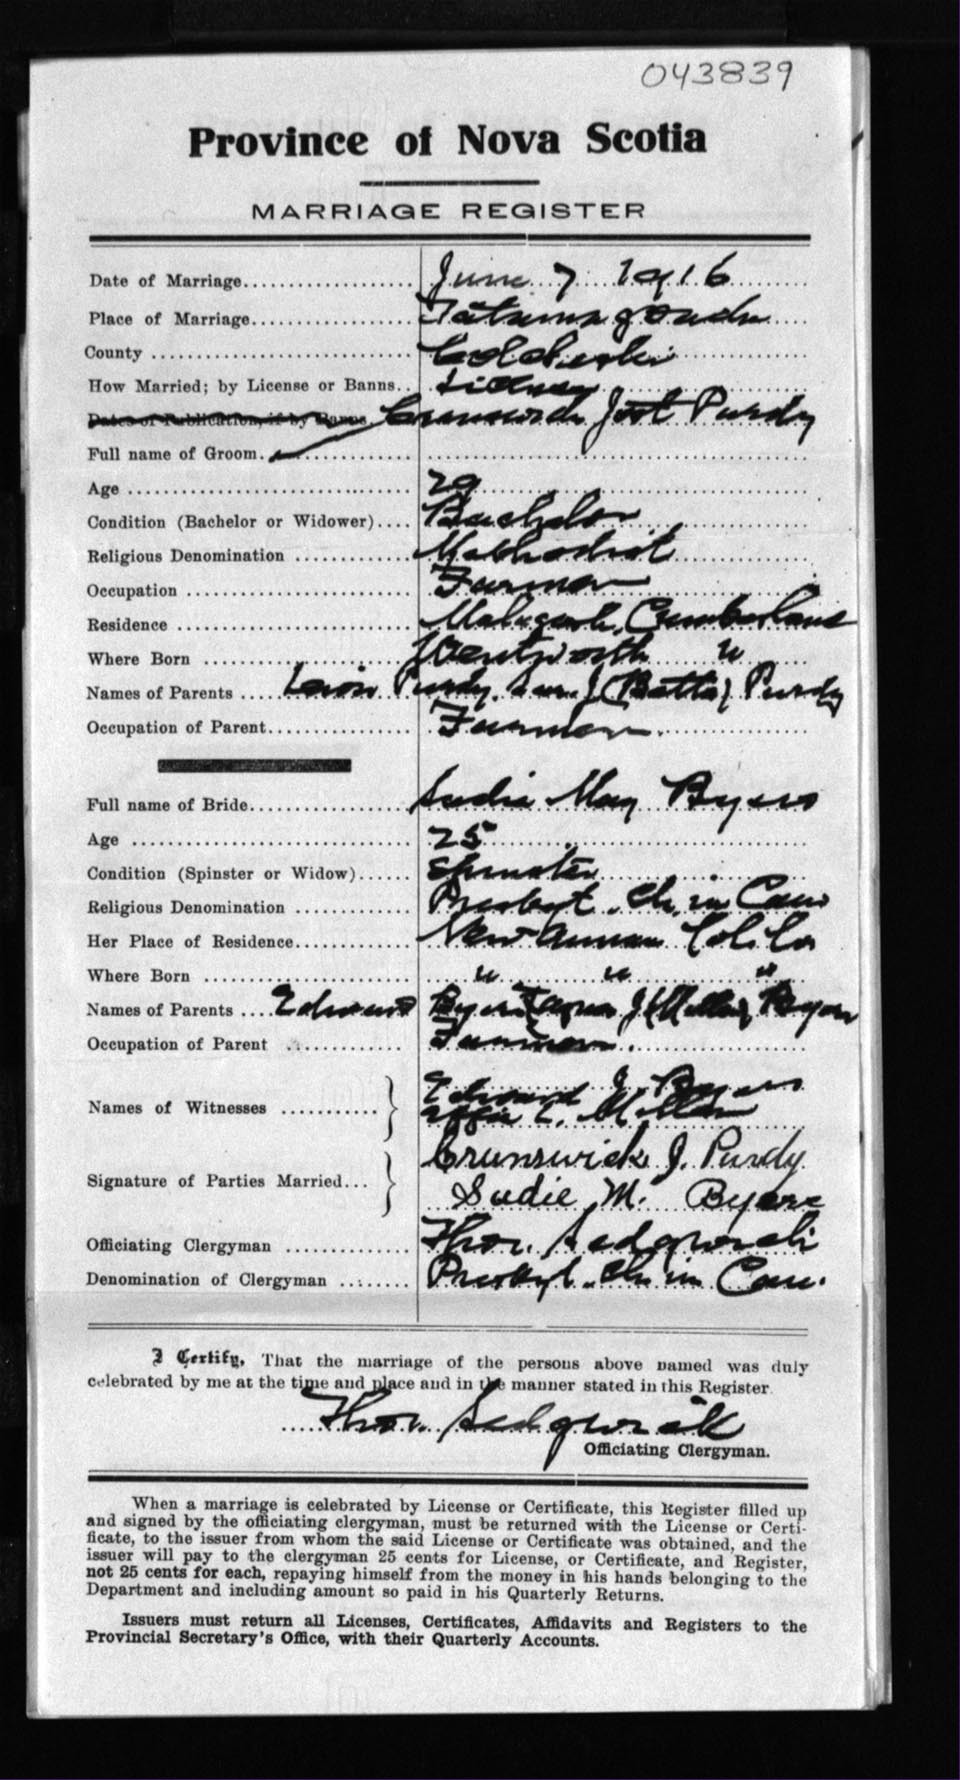 043839
Province of Nova Scotia
MARRIAGE REGISTER
Date of Marriage................... June 7 1916
Place of Marriage.................. Tatamagouche
County ............................ Colchester
How Married; by License or Banns.. License
Dates of Publication, if by Banns. Brunswick Jost Purdy
Full name of Groom.
Age ............................... 29
Condition (Bachelor or Widower).... Bachelor
Religious Denomination ............ Methodist
Occupation ........................ Farmer
Residence ......................... Malagash, Cumberland
Where Born ........................ Wentworth "
Names of Parents .... Purdy, J (Betts) Purdy
Occupation of Parent............... Farmer
Full name of Bride................. Sadie May Byers
Age ............................... 25
Condition (Spinster or Widow)...... Spinster
Religious Denomination ............ Presbyt. Ch. in Can
Her Place of Residence............. New Annan Col. Co
Where Born ........................ " " "
Names of Parents .... Edward Byers J (Millar) Byers
Occupation of Parent .............. Farmer.
Names of Witnesses ........... Edward J. Byers
Effie C. Millar
Signature of Parties Married... Brunswick J. Purdy
Sadie M. Byers
Officiating Clergyman .............. Thos. Sedgwick
Denomination of Clergyman ........ Presbyt. Ch. in Can.
I Certify, That the marriage of the persons above named was duly
celebrated by me at the time and place and in the manner stated in this Register
Thos. Sedgwick
Officiating Clergyman.
When a marriage is celebrated by License or Certificate, this Register filled up
and signed by the officiating clergyman, must be returned with the License or Certi-
ficate, to the issuer from whom the said License or Certificate was obtained, and the
issuer will pay to the clergyman 25 cents for License, or Certificate, and Register,
not 25 cents for each, repaying himself from the money in his hands belonging to the
Department and including amount so paid in his Quarterly Returns.
Issuers must return all Licenses, Certificates, Affidavits and Registers to the
Provincial Secretary's Office, with their Quarterly Accounts.